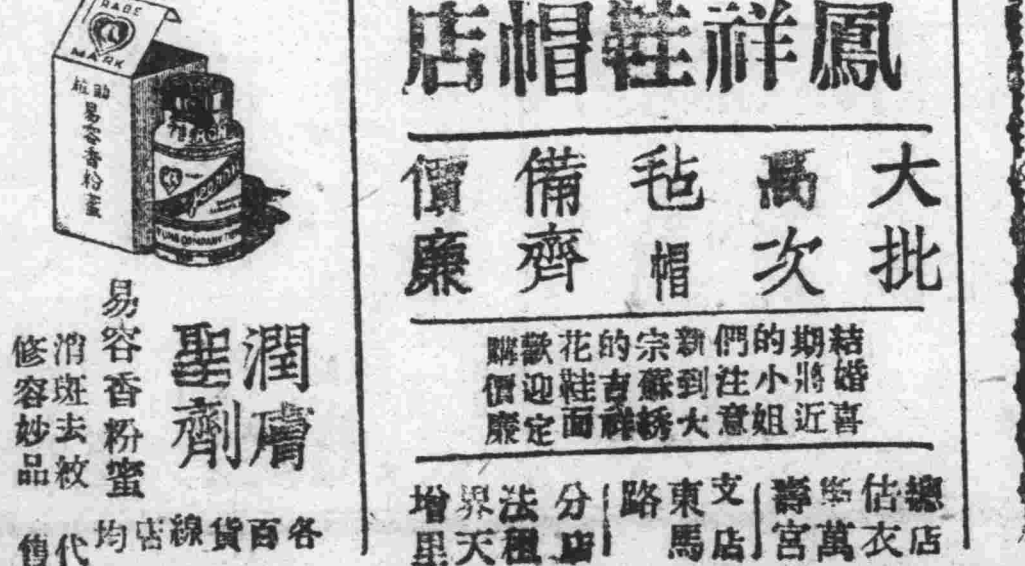 鳳祥鞋帽店
大批
高次
毡帽
備齊
價廉
結婚喜
期將近
的小姐
們注意
新到大
宗蘇綉
的吉祥
花鞋面
歡迎定
購價廉
總店
估衣
街萬
壽宮
支店
東馬
路
分店
法租
界天
增里
RADE
MARK
易容香粉蜜
潤膚
聖劑
易容香粉蜜
消斑去紋
修容妙品
各百貨線店均
代
售